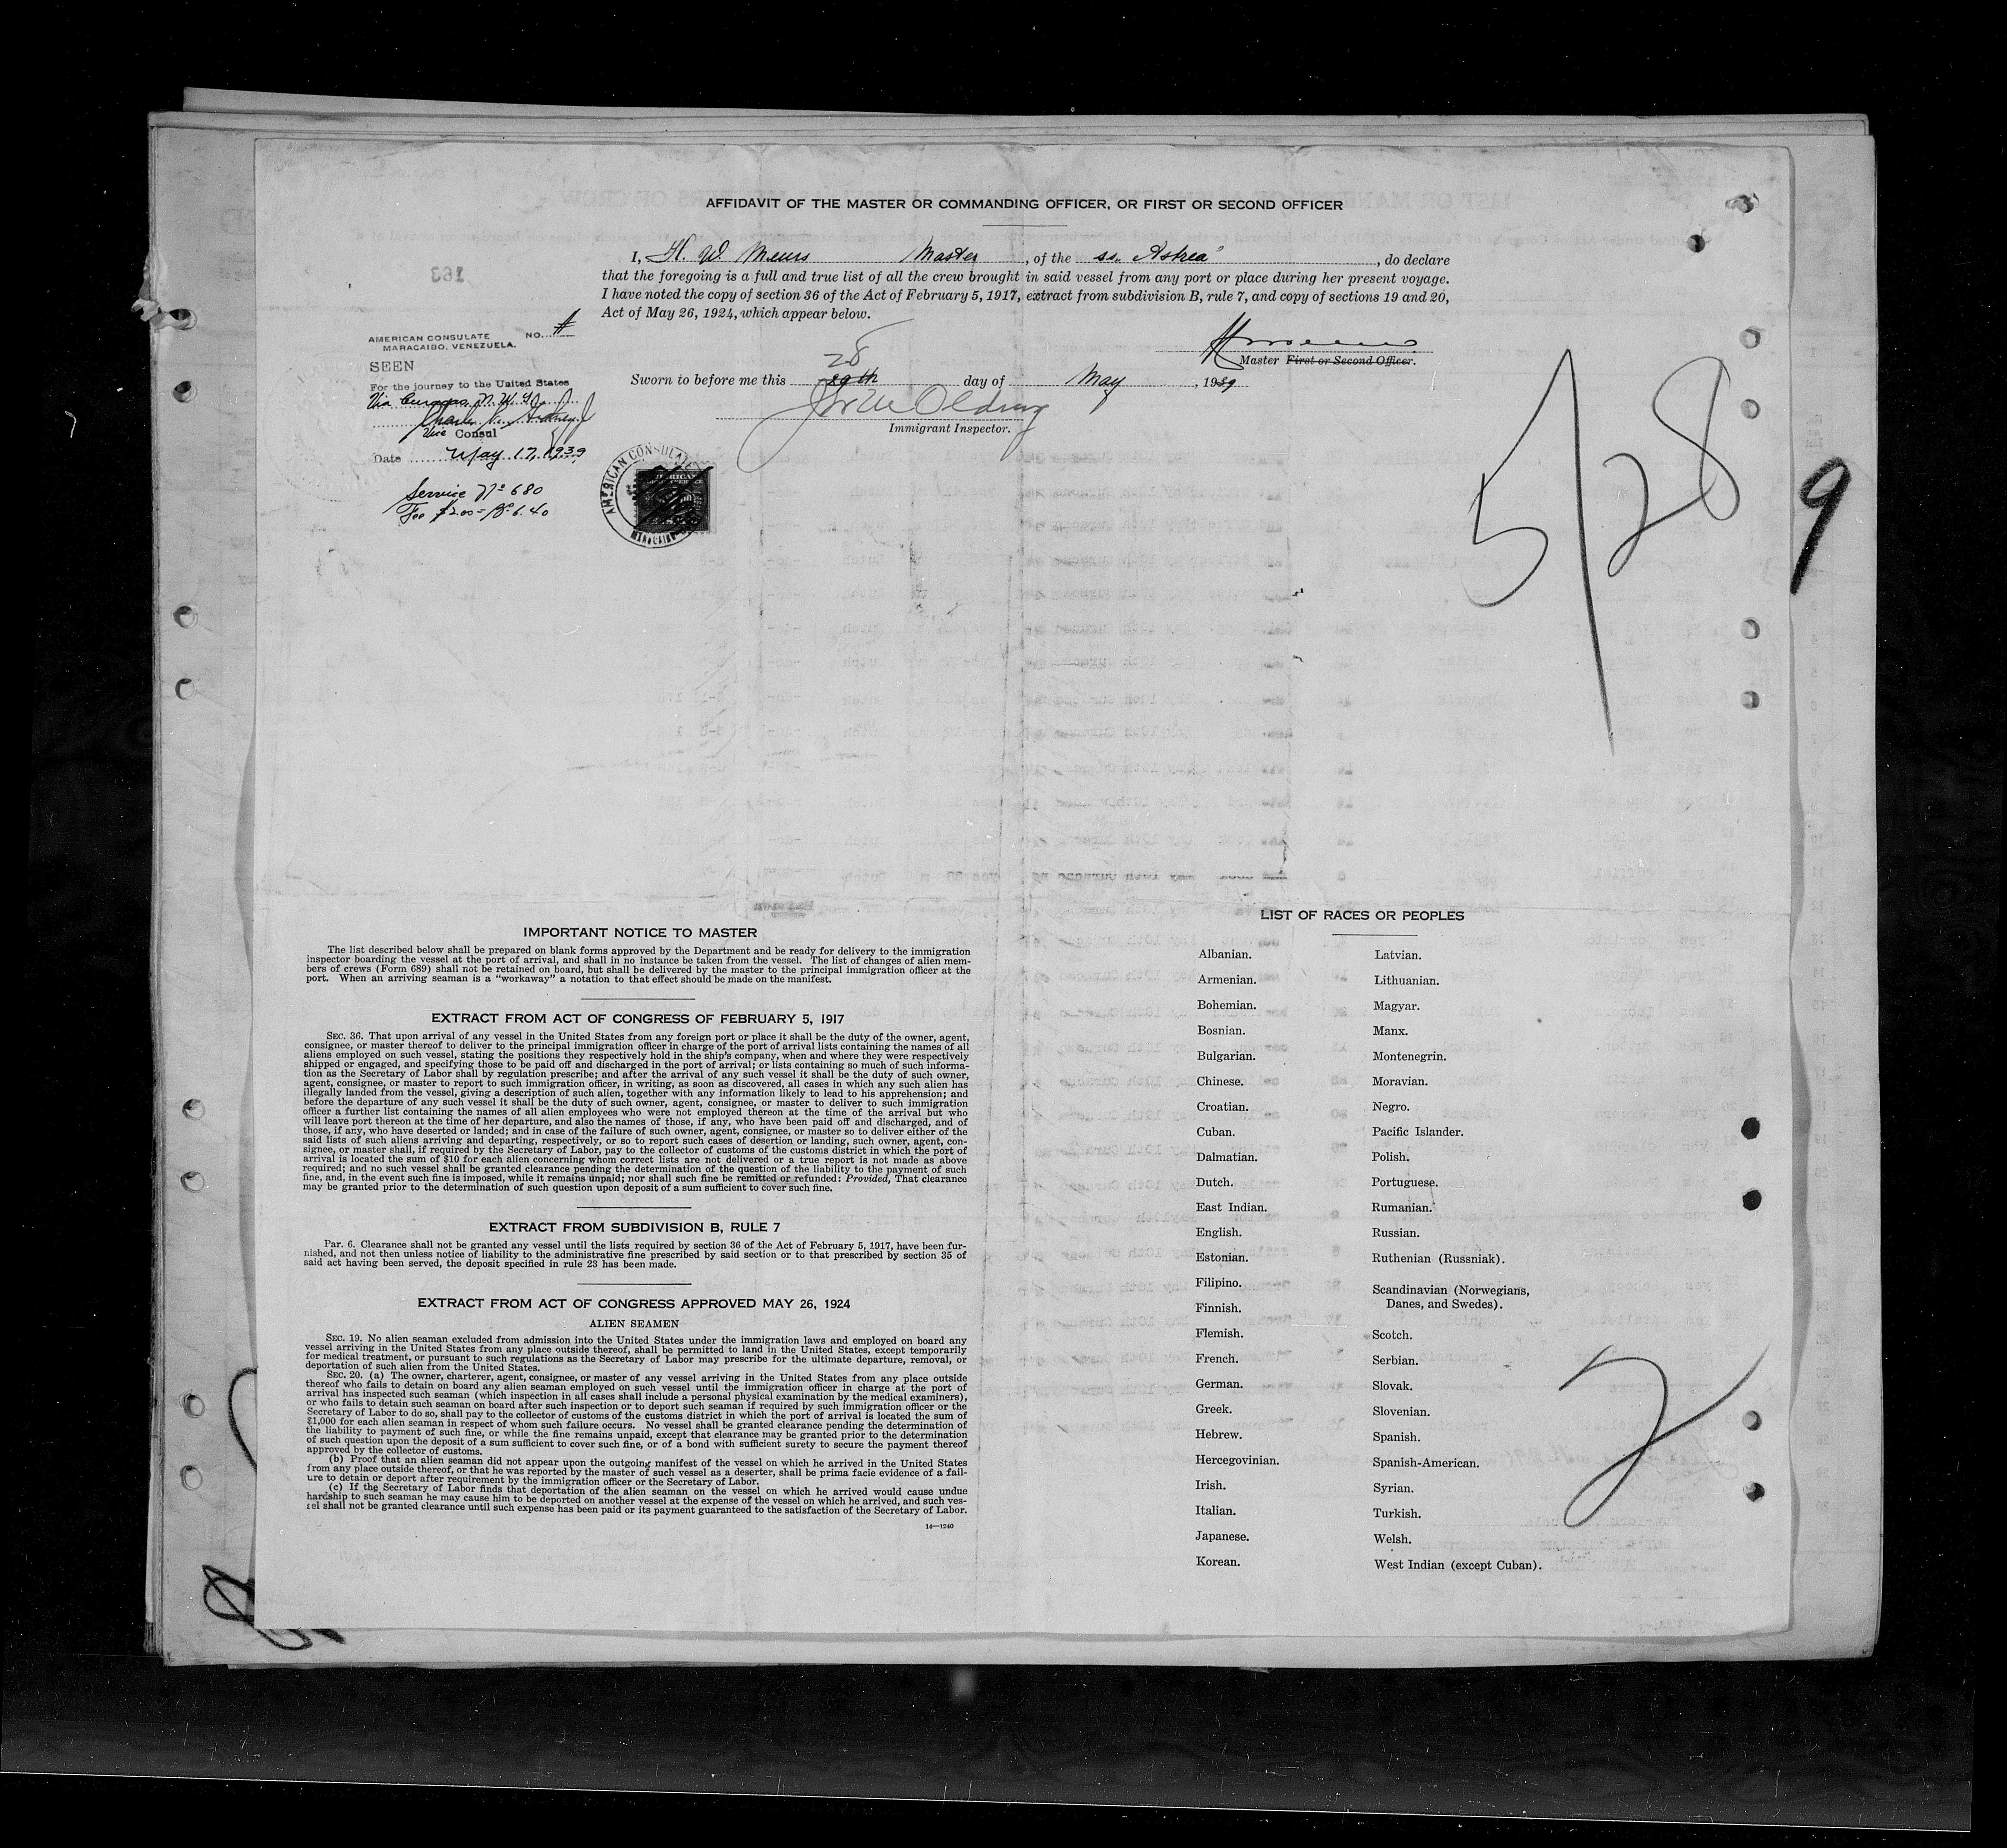 AFFIDAVIT OF THE MASTER OR COMMANDING OFFICER, OR FIRST OR SECOND OFFICER
I, H. W. Meurs Master, of the ss. Astrea", do declare
that the foregoing is a full and true list of all the crew brought in said vessel from any port or place during her present voyage.
I have noted the copy of section 36 of the Act of February 5, 1917, extract from subdivision B, rule 7, and copy of sections 19 and 20,
Act of May 26, 1924, which appear below.
Master First or Second Officer.
28
Sworn to before me this 29th day of May, 1939
Immigrant Inspector.
163
AMERICAN CONSULATE NO.
MARACAIBO, VENEZUELA.
SEEN
For the journey to the United States
Via Curaçao, N. W. I.
Vice Consul
Date May 17, 1939
Service Nº 680
Fee $2.00 = Bs. 6.40
AMERICAN CONSULATE
MARACAIBO
5/28
9
IMPORTANT NOTICE TO MASTER
The list described below shall be prepared on blank forms approved by the Department and be ready for delivery to the immigration
inspector boarding the vessel at the port of arrival, and shall in no instance be taken from the vessel. The list of changes of alien mem-
bers of crews (Form 689) shall not be retained on board, but shall be delivered by the master to the principal immigration officer at the
port. When an arriving seaman is a "workaway" a notation to that effect should be made on the manifest.
EXTRACT FROM ACT OF CONGRESS OF FEBRUARY 5, 1917
SEC. 36. That upon arrival of any vessel in the United States from any foreign port or place it shall be the duty of the owner, agent,
consignee, or master thereof to deliver to the principal immigration officer in charge of the port of arrival lists containing the names of all
aliens employed on such vessel, stating the positions they respectively hold in the ship's company, when and where they were respectively
shipped or engaged, and specifying those to be paid off and discharged in the port of arrival; or lists containing so much of such informa-
tion as the Secretary of Labor shall by regulation prescribe; and after the arrival of any such vessel it shall be the duty of such owner,
agent, consignee, or master to report to such immigration officer, in writing, as soon as discovered, all cases in which any such alien has
illegally landed from the vessel, giving a description of such alien, together with any information likely to lead to his apprehension; and
before the departure of any such vessel it shall be the duty of such owner, agent, consignee, or master to deliver to such immigration
officer a further list containing the names of all alien employees who were not employed thereon at the time of the arrival but who
will leave port thereon at the time of her departure, and also the names of those, if any, who have been paid off and discharged, and of
those, if any, who have deserted or landed; and in case of the failure of such owner, agent, consignee, or master so to deliver either of the
said lists of such aliens arriving and departing, respectively, or so to report such cases of desertion or landing, such owner, agent, con-
signee, or master shall, if required by the Secretary of Labor, pay to the collector of customs of the customs district in which the port of
arrival is located the sum of $10 for each alien concerning whom correct lists are not delivered or a true report is not made as above
required; and no such vessel shall be granted clearance pending the determination of the question of the liability to the payment of such
fine, and, in the event such fine is imposed, while it remains unpaid; nor shall such fine be remitted or refunded: Provided, That clearance
may be granted prior to the determination of such question upon deposit of a sum sufficient to cover such fine.
EXTRACT FROM SUBDIVISION B, RULE 7
PAR. 6. Clearance shall not be granted any vessel until the lists required by section 36 of the Act of February 5, 1917, have been fur-
nished, and not then unless notice of liability to the administrative fine prescribed by said section or to that prescribed by section 35 of
said act having been served, the deposit specified in rule 23 has been made.
EXTRACT FROM ACT OF CONGRESS APPROVED MAY 26, 1924
ALIEN SEAMEN
SEC. 19. No alien seaman excluded from admission into the United States under the immigration laws and employed on board any
vessel arriving in the United States from any place outside thereof, shall be permitted to land in the United States, except temporarily
for medical treatment, or pursuant to such regulations as the Secretary of Labor may prescribe for the ultimate departure, removal, or
deportation of such alien from the United States.
SEC. 20. (a) The owner, charterer, agent, consignee, or master of any vessel arriving in the United States from any place outside
thereof who fails to detain on board any alien seaman employed on such vessel until the immigration officer in charge at the port of
arrival has inspected such seaman (which inspection in all cases shall include a personal physical examination by the medical examiners),
or who fails to detain such seaman on board after such inspection or to deport such seaman if required by such immigration officer or the
Secretary of Labor to do so, shall pay to the collector of customs of the customs district in which the port of arrival is located the sum of
$1,000 for each alien seaman in respect of whom such failure occurs. No vessel shall be granted clearance pending the determination of
the liability to payment of such fine, or while the fine remains unpaid, except that clearance may be granted prior to the determination
of such question upon the deposit of a sum sufficient to cover such fine, or of a bond with sufficient surety to secure the payment thereof
approved by the collector of customs.
(b) Proof that an alien seaman did not appear upon the outgoing manifest of the vessel on which he arrived in the United States
from any place outside thereof, or that he was reported by the master of such vessel as a deserter, shall be prima facie evidence of a fail-
ure to detain or deport after requirement by the immigration officer or the Secretary of Labor.
(c) If the Secretary of Labor finds that deportation of the alien seaman on the vessel on which he arrived would cause undue
hardship to such seaman he may cause him to be deported on another vessel at the expense of the vessel on which he arrived, and such ves-
sel shall not be granted clearance until such expense has been paid or its payment guaranteed to the satisfaction of the Secretary of Labor.
14—1240
LIST OF RACES OR PEOPLES
Albanian.
Armenian.
Bohemian.
Bosnian.
Bulgarian.
Chinese.
Croatian.
Cuban.
Dalmatian.
Dutch.
East Indian.
English.
Estonian.
Filipino.
Finnish.
Flemish.
French.
German.
Greek.
Hebrew.
Hercegovinian.
Irish.
Italian.
Japanese.
Korean.
Latvian.
Lithuanian.
Magyar.
Manx.
Montenegrin.
Moravian.
Negro.
Pacific Islander.
Polish.
Portuguese.
Rumanian.
Russian.
Ruthenian (Russniak).
Scandinavian (Norwegians,
Danes, and Swedes).
Scotch.
Serbian.
Slovak.
Slovenian.
Spanish.
Spanish-American.
Syrian.
Turkish.
Welsh.
West Indian (except Cuban).
2